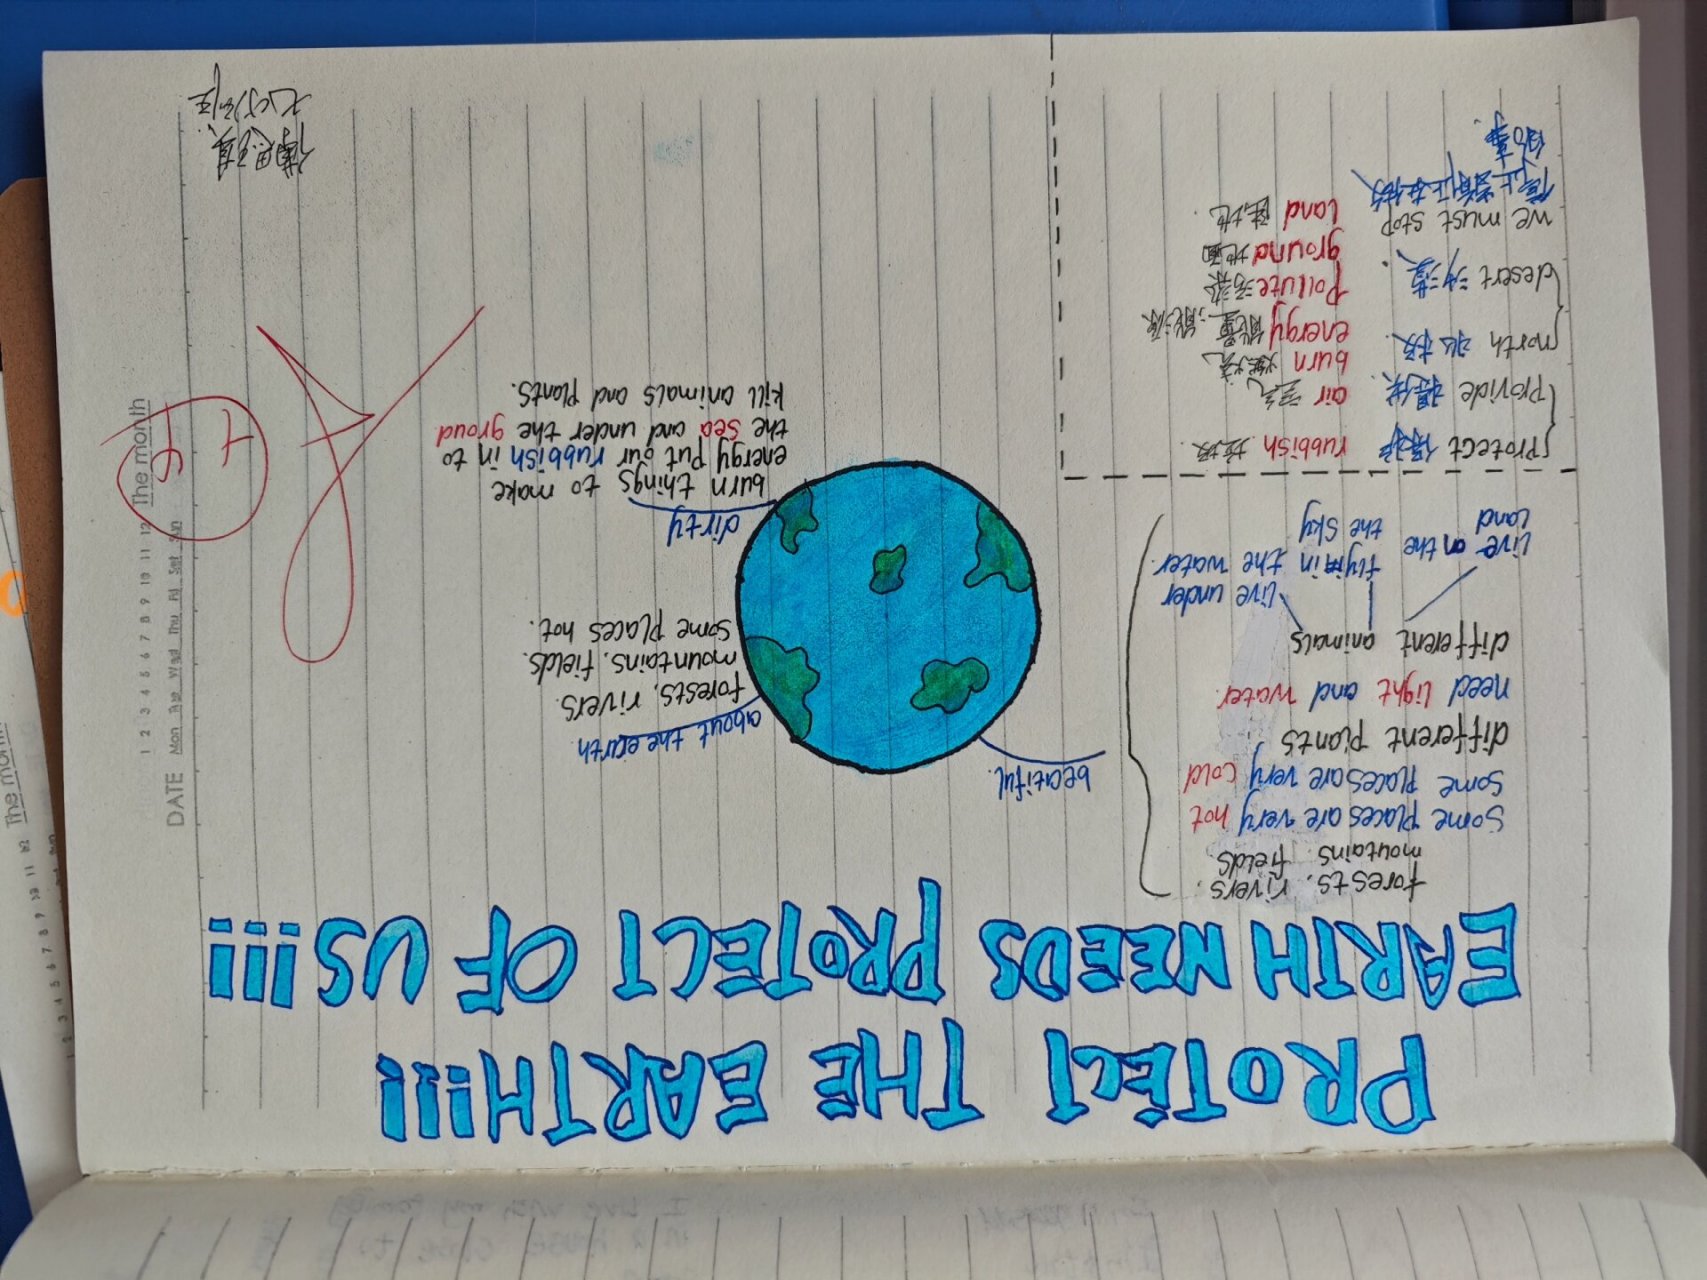 PROTECT THE EARTH!!!
EARTH NEEDS PROTECT OF US!!!
forests. rivers.
moutains. fields.
Some places are very hot
Some places are very cold
different plants
need light and water.
different animals
live on the land
fly in the sky
live under the water.
beautiful.
about the earth
forests. rivers.
mountains. fields.
some places hot.
dirty
burn things to make
energy put our rubbish in to
the sea and under the groud
kill animals and plants.
protect 保护
provide 提供.
north 北极.
desert 沙漠.
we must stop
停止当前正在做
的事.
rubbish 垃圾.
air 空气
burn 燃烧
energy 能量.能源
pollute 污染
ground 地面
land 陆地.
DATE
Mon Tue Wed Thu Fri Sat Sun
1 2 3 4 5 6 7 8 9 10 11 12 The month